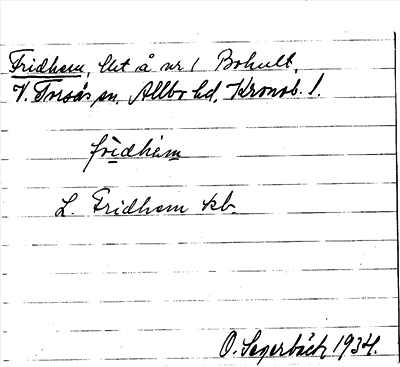 Fridhem, lht å nr 1 Bohult,
V. Torsås sn, Allbo hd, Kronob. l.
frìdhém
L. Fridhem kb.
O. Sagerbäck 1934.